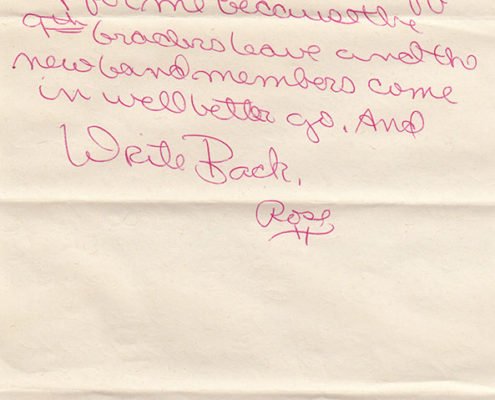 for me because the
9th Graders leave and the
new band members come
in well better go. And
Write Back.
Rose